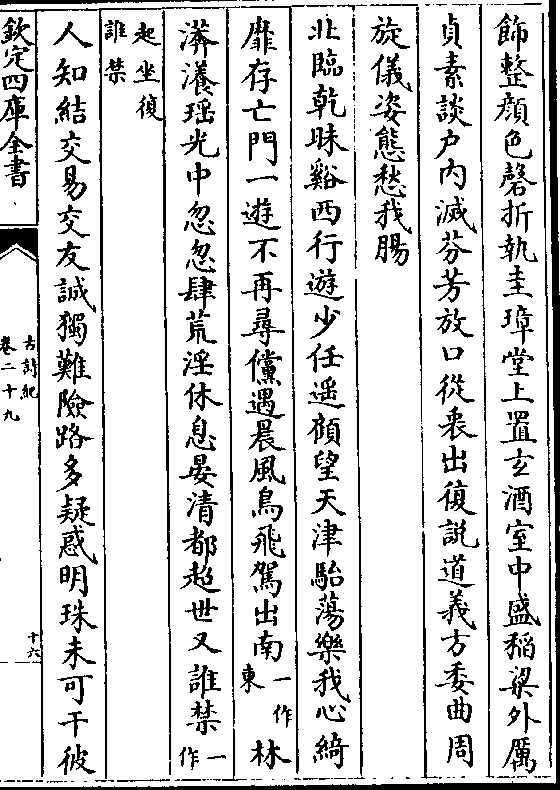 飾整顔色磬折執圭璋堂上置玄酒室中盛稻粱外厲
貞素談户内滅芬芳放口從衷出復説道義方委曲周
旋儀姿態愁我腸
北臨乾昧谿西行遊少任遥顧望天津駘蕩樂我心綺
靡存亡門一遊不再尋儻遇晨風鳥飛駕出南一作東林
漭瀁瑶光中忽忽肆荒淫休息晏清都超世又誰禁一作
起坐復誰禁
人知結交易交友誠獨難險路多疑惑明珠未可干彼
欽定四庫全書
古詩紀
卷二十九
十六